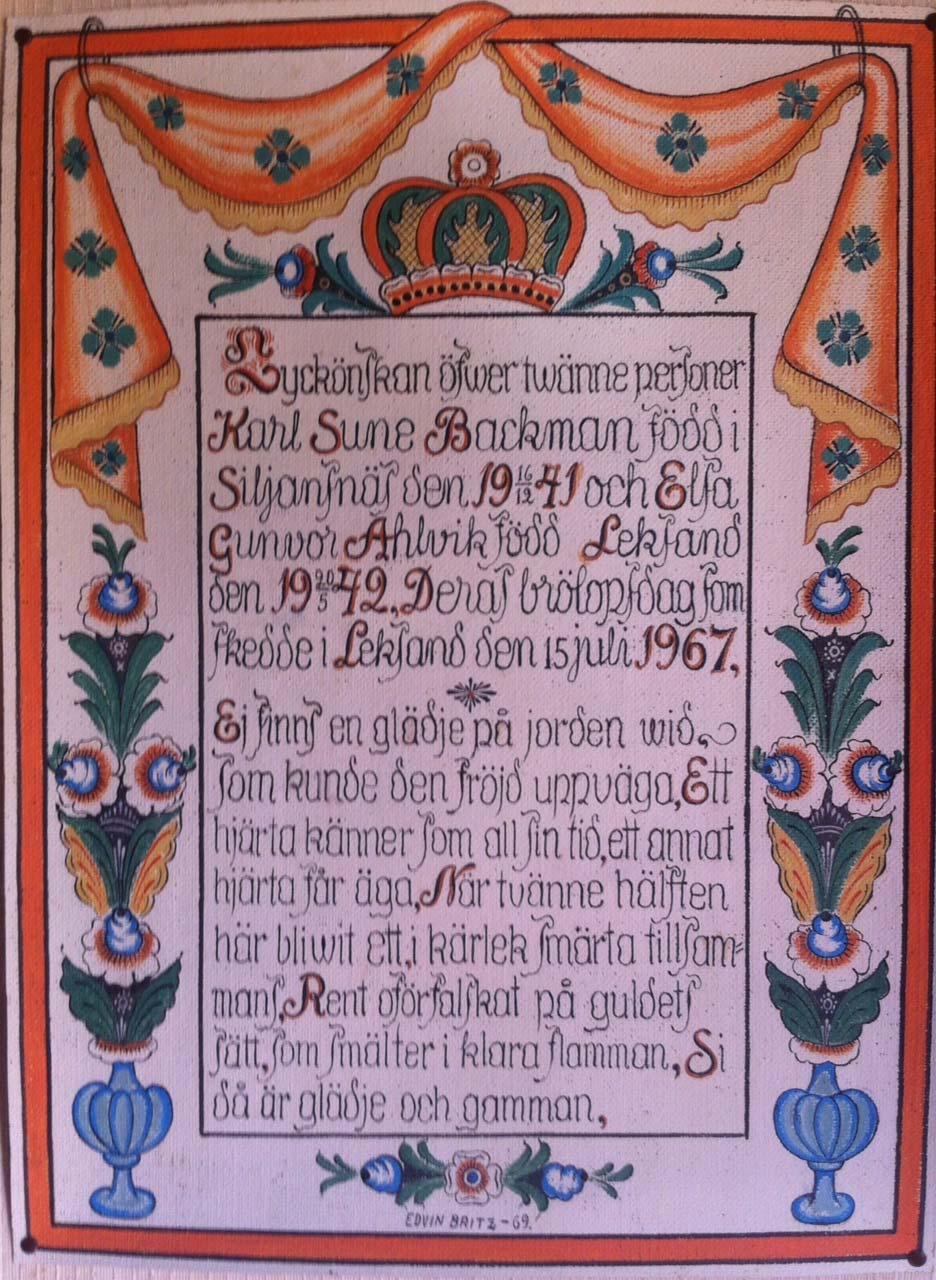 Lyckönſkan öfwer twänne perſoner
Karl Sune Backman född i
Siljanſnäſ den 19 16/12 41 och Elſa
Gunvor Ahlvik född Lekſand
den 19 20/5 42, Deraſ brölopſdag ſom
ſkedde i Lekſand den 15 juli 1967,
Ej finnſ en glädje på jorden wid
ſom kunde den fröjd uppväga, Ett
hjärta känner ſom all ſin tid, ett annat
hjärta får äga, När tvänne hälften
här bliwit ett, i kärlek ſmärta tillſam=
manſ, Rent oförfalſkat på guldetſ
ſätt, ſom ſmälter i klara flamman, Si
då är glädje och gamman,
EDVIN BRITZ - 69.